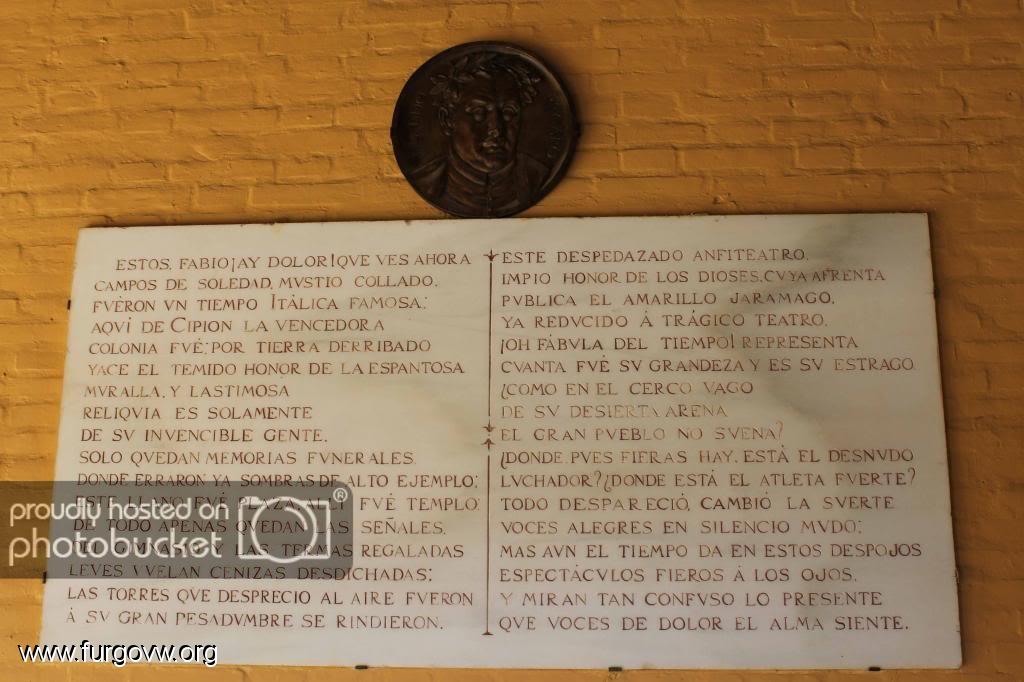 ESTOS, FABIO ¡AY DOLOR! QVE VES AHORA
CAMPOS DE SOLEDAD, MVSTIO COLLADO,
FVÉRON VN TIEMPO ITÁLICA FAMOSA:
AQVÍ DE CIPION LA VENCEDORA
COLONIA FVÉ: POR TIERRA DERRIBADO
YACE EL TEMIDO HONOR DE LA ESPANTOSA
MVRALLA, Y LASTIMOSA
RELIQVIA ES SOLAMENTE
DE SV INVENCIBLE GENTE.
SOLO QVEDAN MEMORIAS FVNERALES
DONDE ERRARON YA SOMBRAS DE ALTO EJEMPLO;
ESTE LLANO FVÉ PLAZA, ALLÍ FVÉ TEMPLO:
DE TODO APENAS QVEDAN LAS SEÑALES.
DEL GIMNASIO Y LAS TERMAS REGALADAS
LEVES VVELAN CENIZAS DESDICHADAS;
LAS TORRES QVE DESPRECIO AL AIRE FVERON
Á SV GRAN PESADVMBRE SE RINDIERON.
ESTE DESPEDAZADO ANFITEATRO,
IMPIO HONOR DE LOS DIOSES, CVYA AFRENTA
PVBLICA EL AMARILLO JARAMAGO,
YA REDVCIDO Á TRÁGICO TEATRO,
¡OH FÁBVLA DEL TIEMPO! REPRESENTA
CVANTA FVÉ SV GRANDEZA Y ES SV ESTRAGO.
¿COMO EN EL CERCO VAGO
DE SV DESIERTA ARENA
EL GRAN PVEBLO NO SVENA?
¿DONDE, PVES FIERAS HAY, ESTÁ EL DESNVDO
LVCHADOR? ¿DONDE ESTÁ EL ATLETA FVERTE?
TODO DESPARECIÓ, CAMBIÓ LA SVERTE
VOCES ALEGRES EN SILENCIO MVDO;
MAS AVN EL TIEMPO DA EN ESTOS DESPOJOS
ESPECTÁCVLOS FIEROS Á LOS OJOS,
Y MIRAN TAN CONFVSO LO PRESENTE
QVE VOCES DE DOLOR EL ALMA SIENTE.
proudly hosted on
photobucket
®
www.furgovw.org